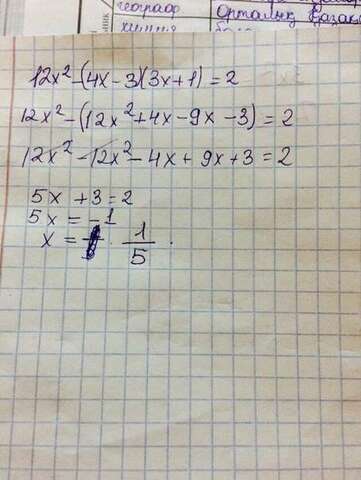 географ
Орталық Қазақ
химия
12x² - (4x - 3)(3x + 1) = 2
12x² - (12x² + 4x - 9x - 3) = 2
12x² - 12x² - 4x + 9x + 3 = 2
5x + 3 = 2
5x = -1
x = - 1/5.